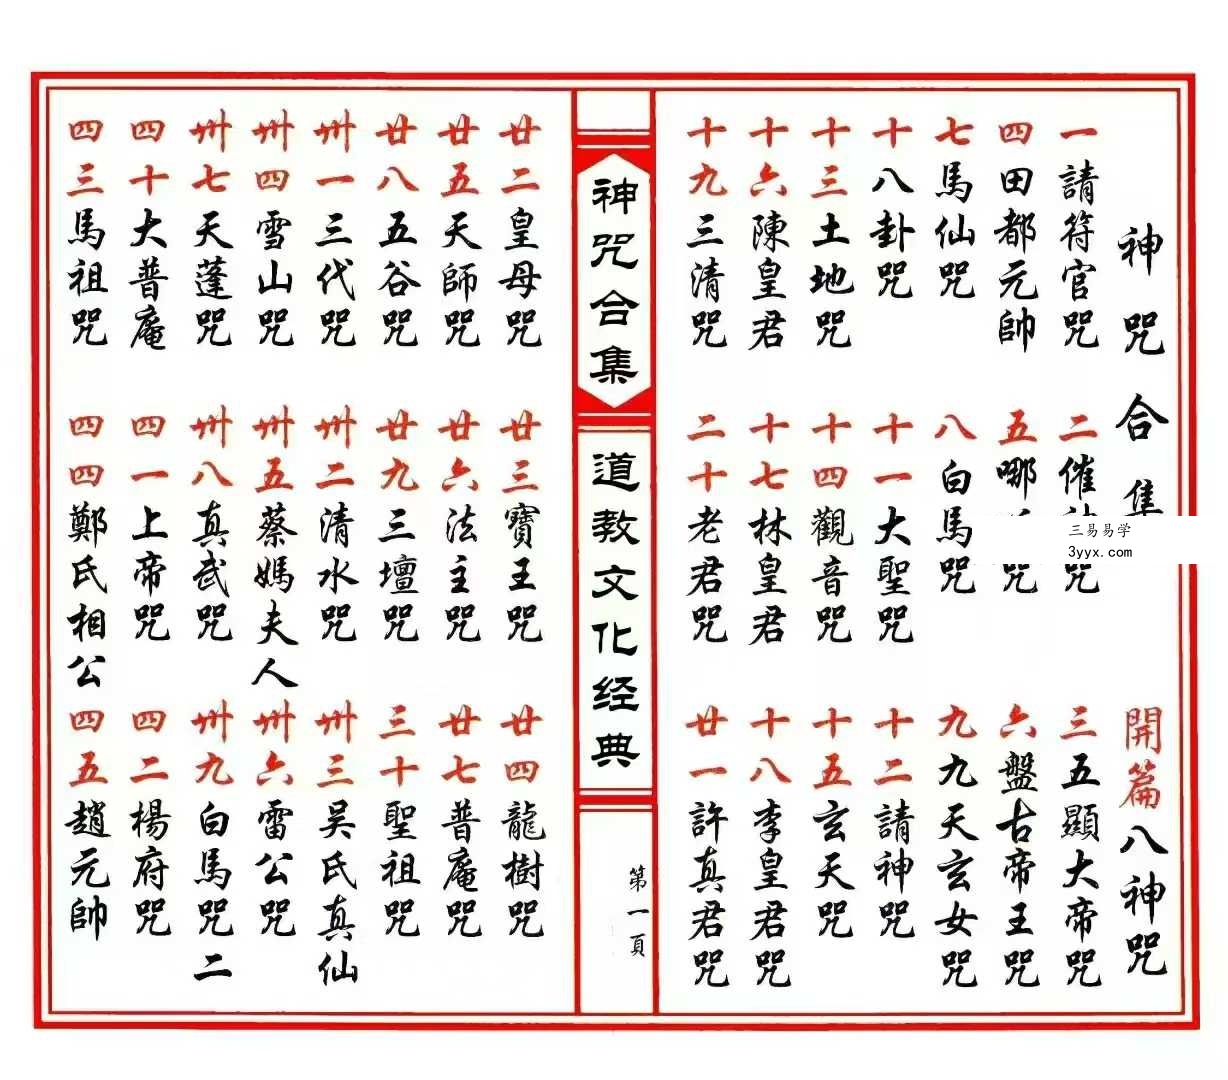 神咒合集 開篇八神咒
一請符官咒 二催咒 三五顯大帝咒
四田都元帥 五哪咒 六盤古帝王咒
七馬仙咒 八白馬咒 九九天玄女咒
十八卦咒 十一大聖咒 十二請神咒
十三土地咒 十四觀音咒 十五玄天咒
十六陳皇君 十七林皇君 十八李皇君咒
十九三清咒 二十老君咒 廿一許真君咒
三易易学
3yyx.com
神咒合集
道教文化经典
第一頁
廿二皇母咒 廿三寶王咒 廿四龍樹咒
廿五天師咒 廿六法主咒 廿七普庵咒
廿八五谷咒 廿九三壇咒 三十聖祖咒
卅一三代咒 卅二清水咒 卅三吴氏真仙
卅四雪山咒 卅五蔡媽夫人 卅六雷公咒
卅七天蓬咒 卅八真武咒 卅九白馬咒二
四十大普庵 四一上帝咒 四二楊府咒
四三馬祖咒 四四鄭氏相公 四五趙元帥